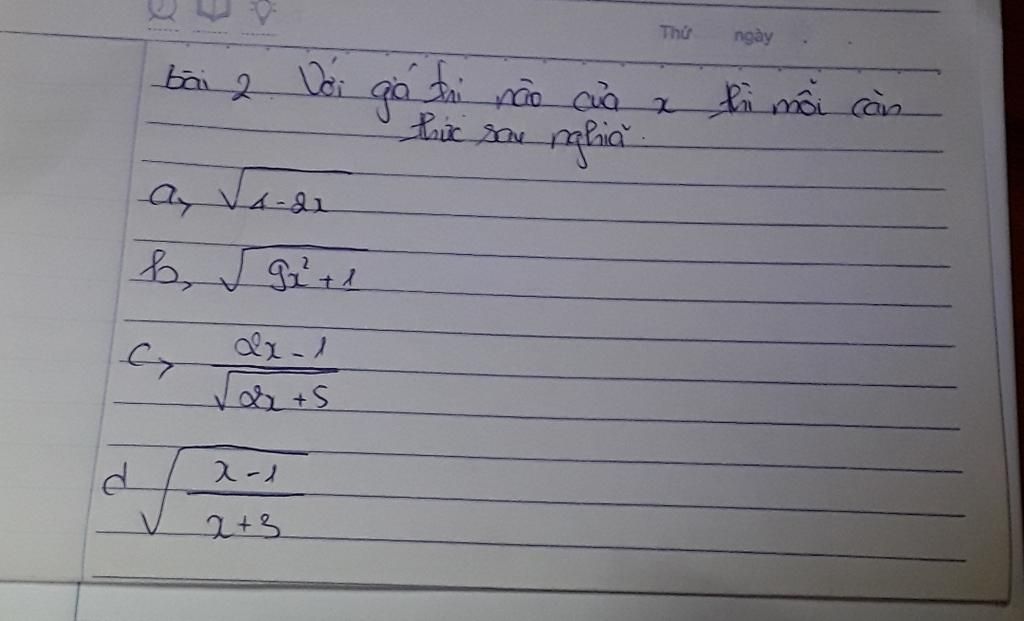 Thứ ngày . .
bài 2. Với giá thi nào của x thì mỗi căn
thức sau nghĩa.
a, √1-2x
b, √9x²+1
c, 2x-1
√2x+5
d √x-1
x+3